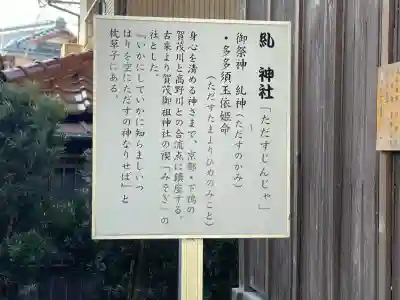 糺 神社「ただすじんじゃ」
御祭神 糺神(ただすのかみ)
・多多須玉依姫命
(ただすたまよりひめのみこと)
身心を清める神さまで、京都・下鴨の
賀茂川と高野川との合流点に鎮座する。
古来より賀茂御祖神社の禊「みそぎ」の
社とした。
『いかにしていかに知らましいつ
はりを空にただすの神なりせば』と
枕草子にある。